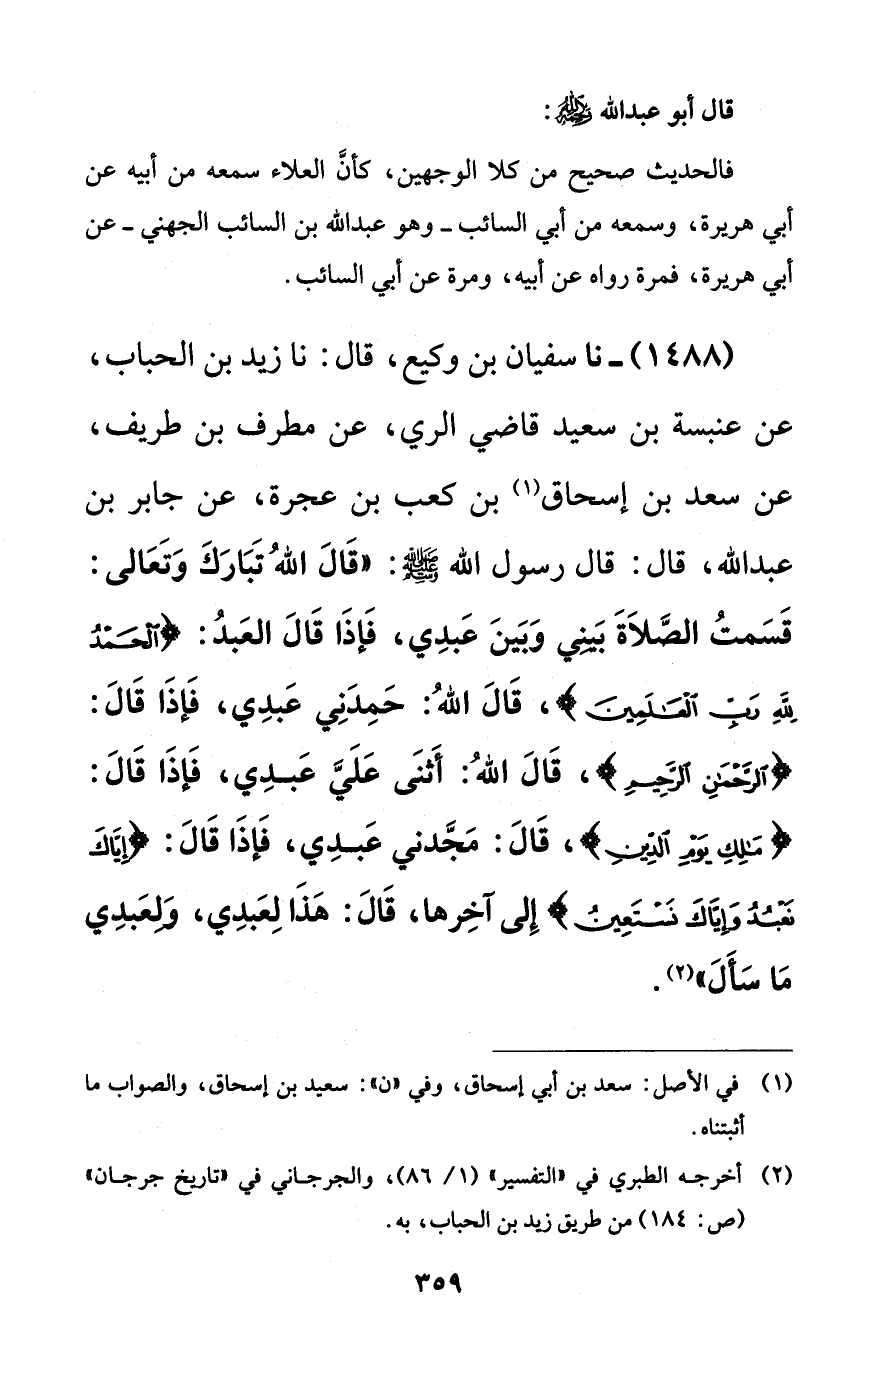 قال أبو عبدالله ﵀:
فالحديث صحيح من كلا الوجهين، كأنَّ العلاء سمعه من أبيه عن
أبي هريرة، وسمعه من أبي السائب ـ وهو عبدالله بن السائب الجهني ـ عن
أبي هريرة، فمرة رواه عن أبيه، ومرة عن أبي السائب.
(١٤٨٨) ـ نا سفيان بن وكيع، قال: نا زيد بن الحباب،
عن عنبسة بن سعيد قاضي الري، عن مطرف بن طريف،
عن سعد بن إسحاق(١) بن كعب بن عجرة، عن جابر بن
عبدالله، قال: قال رسول الله ﷺ: «قَالَ اللهُ تَبَارَكَ وَتَعَالى:
قَسَمتُ الصَّلاَةَ بَينِي وَبَينَ عَبدِي، فَإِذَا قَالَ العَبدُ: ﴿اَلْحَمْدُ
لِلَّهِ رَبِّ اَلْعَٰلَمِينَ﴾، قَالَ اللهُ: حَمِدَنِي عَبدِي، فَإِذَا قَالَ:
﴿اَلرَّحْمَٰنِ اِلرَّحِيمِ﴾، قَالَ اللهُ: أَثنَى عَلَيَّ عَبدِي، فَإِذَا قَالَ:
﴿مَٰلِكِ يَوْمِ اِلدِّينِ﴾، قَالَ: مَجَّدني عَبدِي، فَإِذَا قَالَ: ﴿إِيَّاكَ
نَعْبُدُ وَإِيَّاكَ نَسْتَعِينُ﴾ إِلى آخِرها، قَالَ: هَذَا لِعَبدِي، وَلِعَبدِي
مَا سَأَلَ»(٢).
(١) في الأصل: سعد بن أبي إسحاق، وفي «ن»: سعيد بن إسحاق، والصواب ما
أثبتناه.
(٢) أخرجه الطبري في «التفسير» (١/ ٨٦)، والجرجاني في «تاريخ جرجان»
(ص: ١٨٤) من طريق زيد بن الحباب، به.
٣٥٩